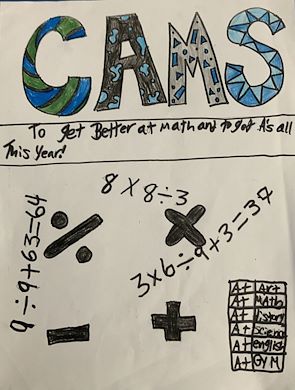 CAMS
To get Better at math and to get A's all
This Year!
8 X 8÷3
9÷9+63=64
3x6÷9+3=34
A+ Art
A+ Math
A+ history
A+ Science
A+ english
A+ GYM